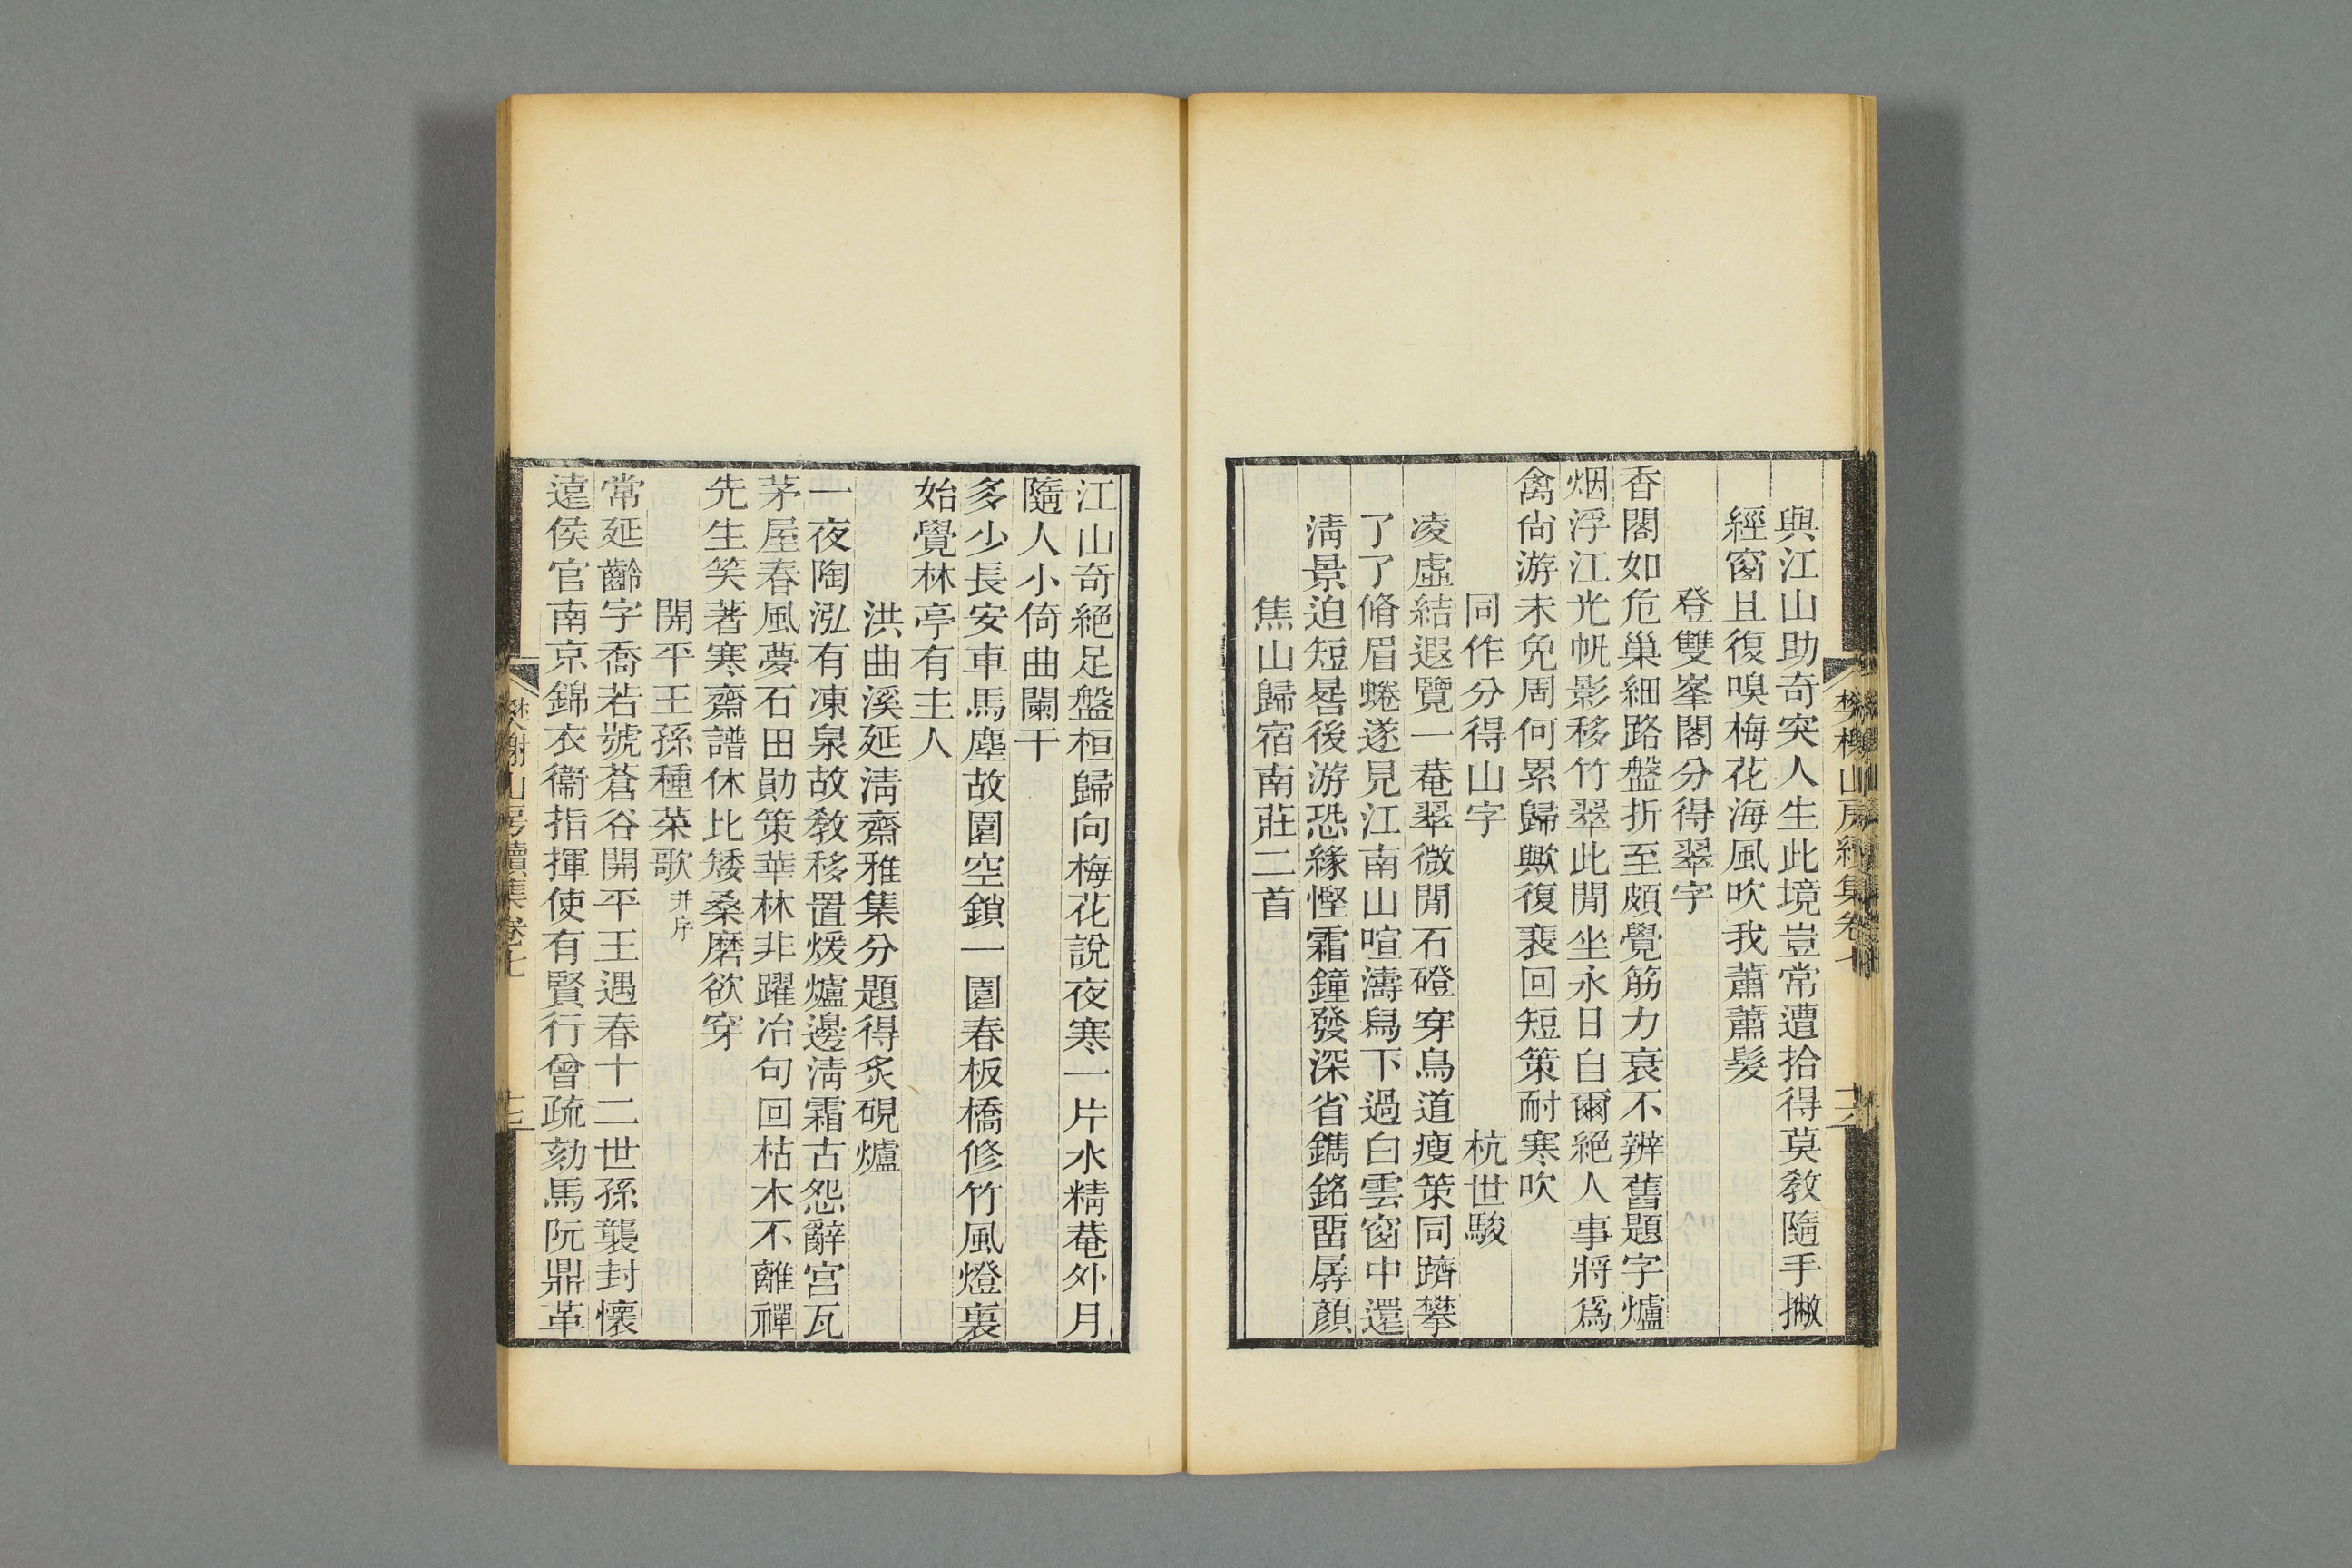 與江山助奇突人生此境豈常遭拾得莫敎隨手撇
經窗且復嗅梅花海風吹我蕭蕭髮
登雙峯閣分得翠字
香閣如危巢細路盤折至頗覺筋力衰不辨舊題字爐
烟浮江光帆影移竹翠此閒坐永日自爾絕人事將爲
禽尙游未免周何累歸歟復裴回短策耐寒吹
同作分得山字 杭世駿
凌虛結遐覽一菴翠微閒石磴穿鳥道瘦策同躋攀
了了脩眉蜷遂見江南山喧濤舄下過白雲窗中還
淸景迫短晷後游恐緣慳霜鐘發深省鐫銘畱孱顏
焦山歸宿南莊二首
江山奇絕足盤桓歸向梅花說夜寒一片水精菴外月
隨人小倚曲闌干
多少長安車馬塵故園空鎖一園春板橋修竹風燈裏
始覺林亭有主人
洪曲溪延淸齋雅集分題得炙硯爐
一夜陶泓有凍泉故敎移置煖爐邊淸霜古怨辭宮瓦
茅屋春風夢石田勛策華林非躍冶句回枯木不離禪
先生笑著寒齋譜休比矮桑磨欲穿
開平王孫種菜歌并序
常延齡字喬若號蒼谷開平王遇春十二世孫襲封懷
遠侯官南京錦衣衞指揮使有賢行曾疏劾馬阮鼎革
樊榭山房續集卷七
十三